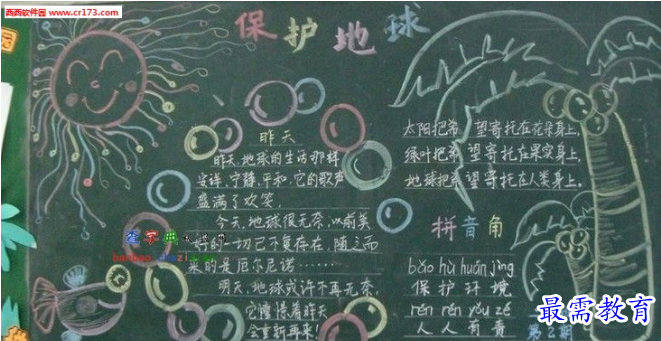 西西软件园
www.cr173.com
园
保护地球
昨天
昨天,地球的生活那样
安详,宁静,平和,它的歌声
盛满了欢笑。
今天,地球很无奈,以前美
好的一切已不复存在,随之而
来的是厄尔尼诺……
明天,地球或许不再无奈,
它憧憬着昨天
会重新再来!
太阳把希望寄托在花朵身上,
绿叶把希望寄托在果实身上,
地球把希望寄托在人类身上。
拼音角
bǎo hù huán jìng
保护环境
rén rén yǒu zé
人人有责
第2期
最需教育